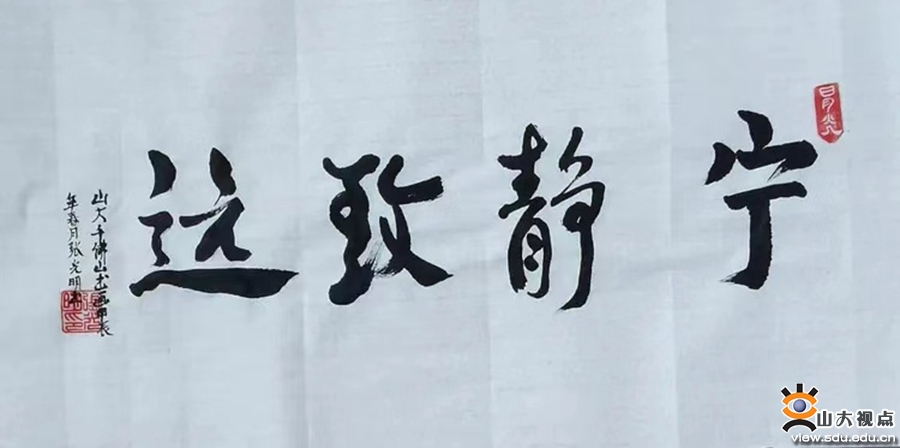 宁静致远
山大千佛山书画
年春月张光明书
山大视点
view.sdu.edu.cn